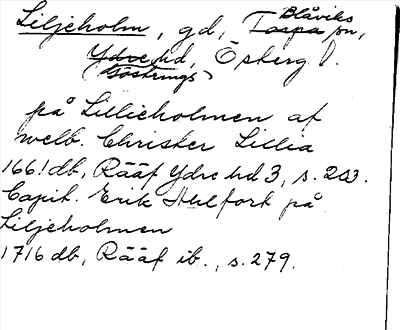 Liljeholm, gd, Torpa sn, Blåviks
Ydre hd, Österg l.
(Göstrings)
på Lillieholmen af
welb. Christer Lillia
1661 db, Rääf Ydre hd 3, s. 203.
Capit. Erik Ahlfort på
Liljeholmen
1716 db, Rääf ib., s. 279.